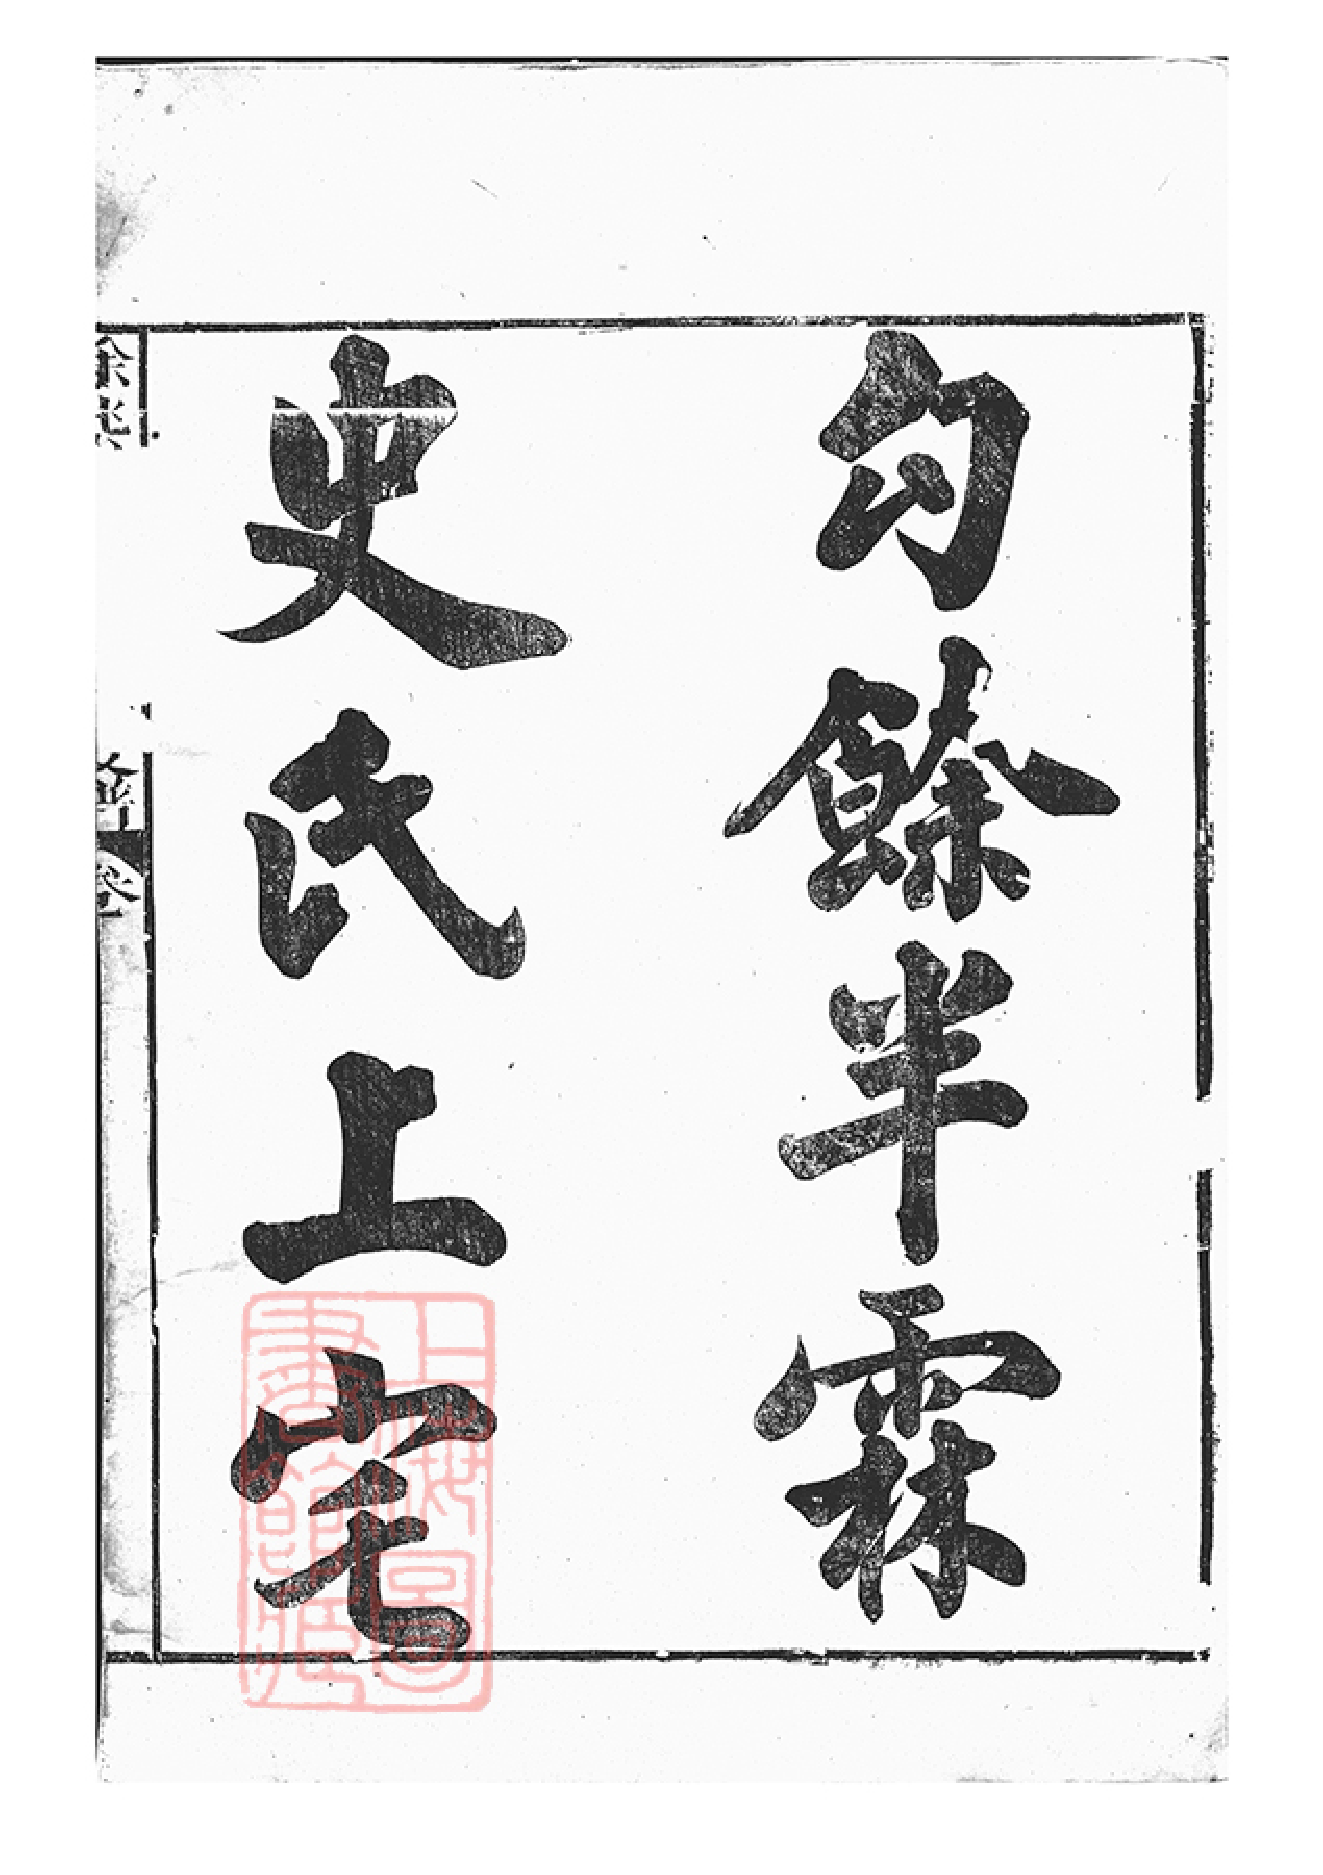 勾餘半霖
史氏上宅
上海圖
書館藏